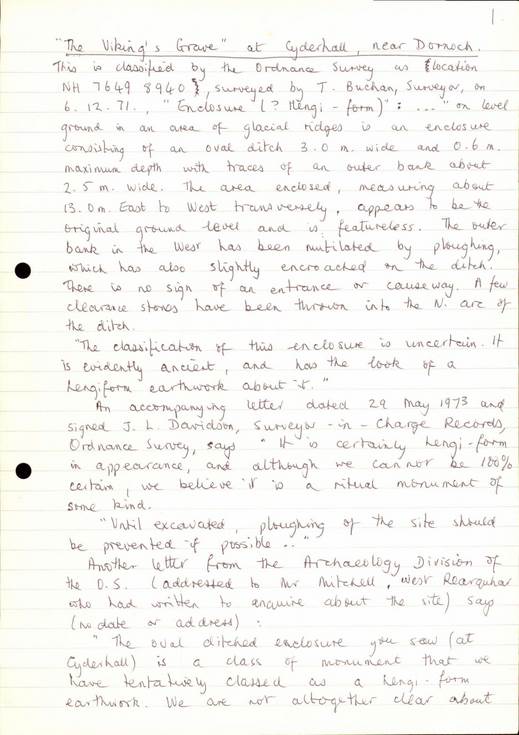 1.
"The Viking's Grave" at Cyderhall, near Dornoch.
This is classified by the Ordnance Survey as {location
NH 7649 8940}, surveyed by T. Buchan, Surveyor, on
6.12.71., "Enclosure (? Henge-form)": ... "on level
ground in an area of glacial ridges is an enclosure
consisting of an oval ditch 3.0 m. wide and 0.6 m.
maximum depth with traces of an outer bank about
2.5 m. wide. The area enclosed, measuring about
13.0m. East to West transversely, appears to be the
original ground level and is featureless. The outer
bank in the West has been mutilated by ploughing,
which has also slightly encroached on the ditch.
There is no sign of an entrance or causeway. A few
clearance stones have been thrown into the N. arc of
the ditch.
"The classification of this enclosure is uncertain. It
is evidently ancient, and has the look of a
hengiform earthwork about it."
An accompanying letter dated 29 May 1973 and
signed J. L. Davidson, Surveyor-in-Charge Records,
Ordnance Survey, says "It is certainly hengi-form
in appearance, and although we cannot be 100%
certain, we believe it is a ritual monument of
some kind.
"Until excavated, ploughing of the site should
be prevented if possible..."
Another letter from the Archaeology Division of
the O.S. (addressed to Mr Mitchell, West Rearquhar
who had written to enquire about the site) says
(no date or address):
"The oval ditched enclosure you saw (at
Cyderhall) is a class of monument that we
have tentatively classed as a hengi-form
earthwork. We are not altogether clear about